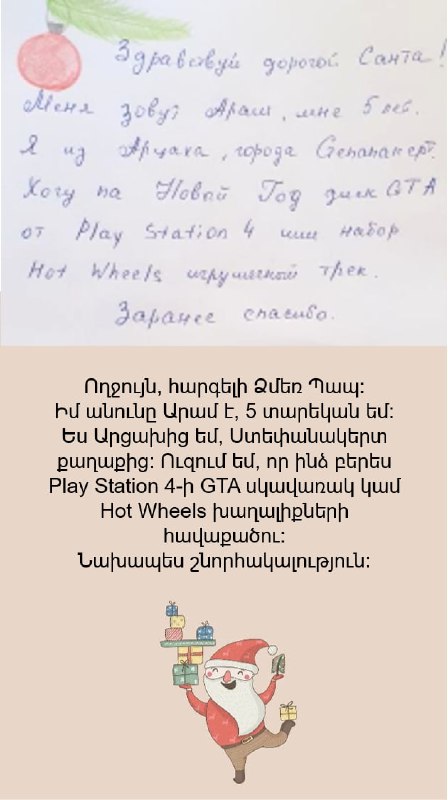 Здравствуй дорогой Санта!
Меня зовут Арам, мне 5 лет.
Я из Арцаха, города Степанакерт.
Хочу на Новый Год диск GTA
от Play Station 4 или набор
Hot Wheels игрушечный трек.
Заранее спасибо.
Ողջույն, հարգելի Ձմեռ Պապ:
Իմ անունը Արամ է, 5 տարեկան եմ:
Ես Արցախից եմ, Ստեփանակերտ
քաղաքից: Ուզում եմ, որ ինձ բերես
Play Station 4-ի GTA սկավառակ կամ
Hot Wheels խաղալիքների
հավաքածու:
Նախապես շնորհակալություն: